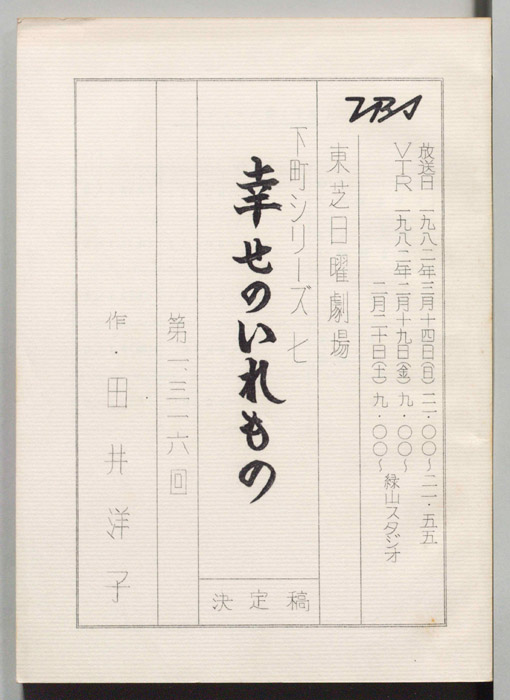 TBS
放送日 一九八二年三月十四日(日) 二一・〇〇~二一・五五
VTR 一九八二年二月十九日(金) 九・〇〇~
二月二十日(土) 九・〇〇~
緑山スタジオ
東芝日曜劇場
下町シリーズ 七
幸せのいれもの
決定稿
第一、三一六回
作・田井洋子